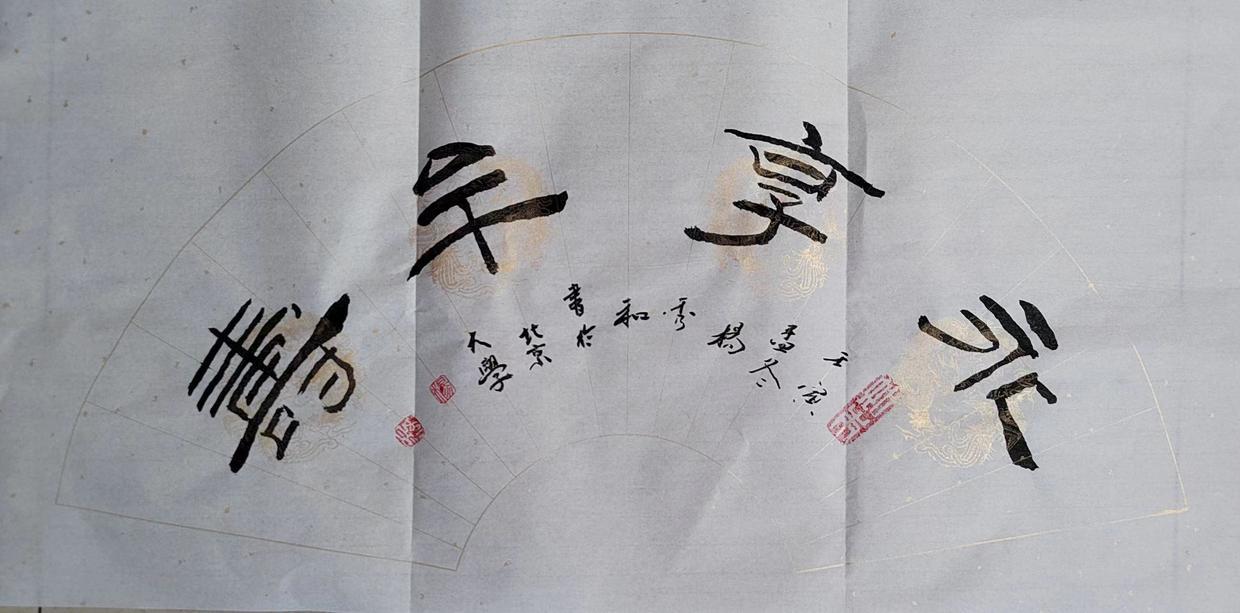 永享年壽
壬寅
孟冬
楊秀和
書於
北京
大學